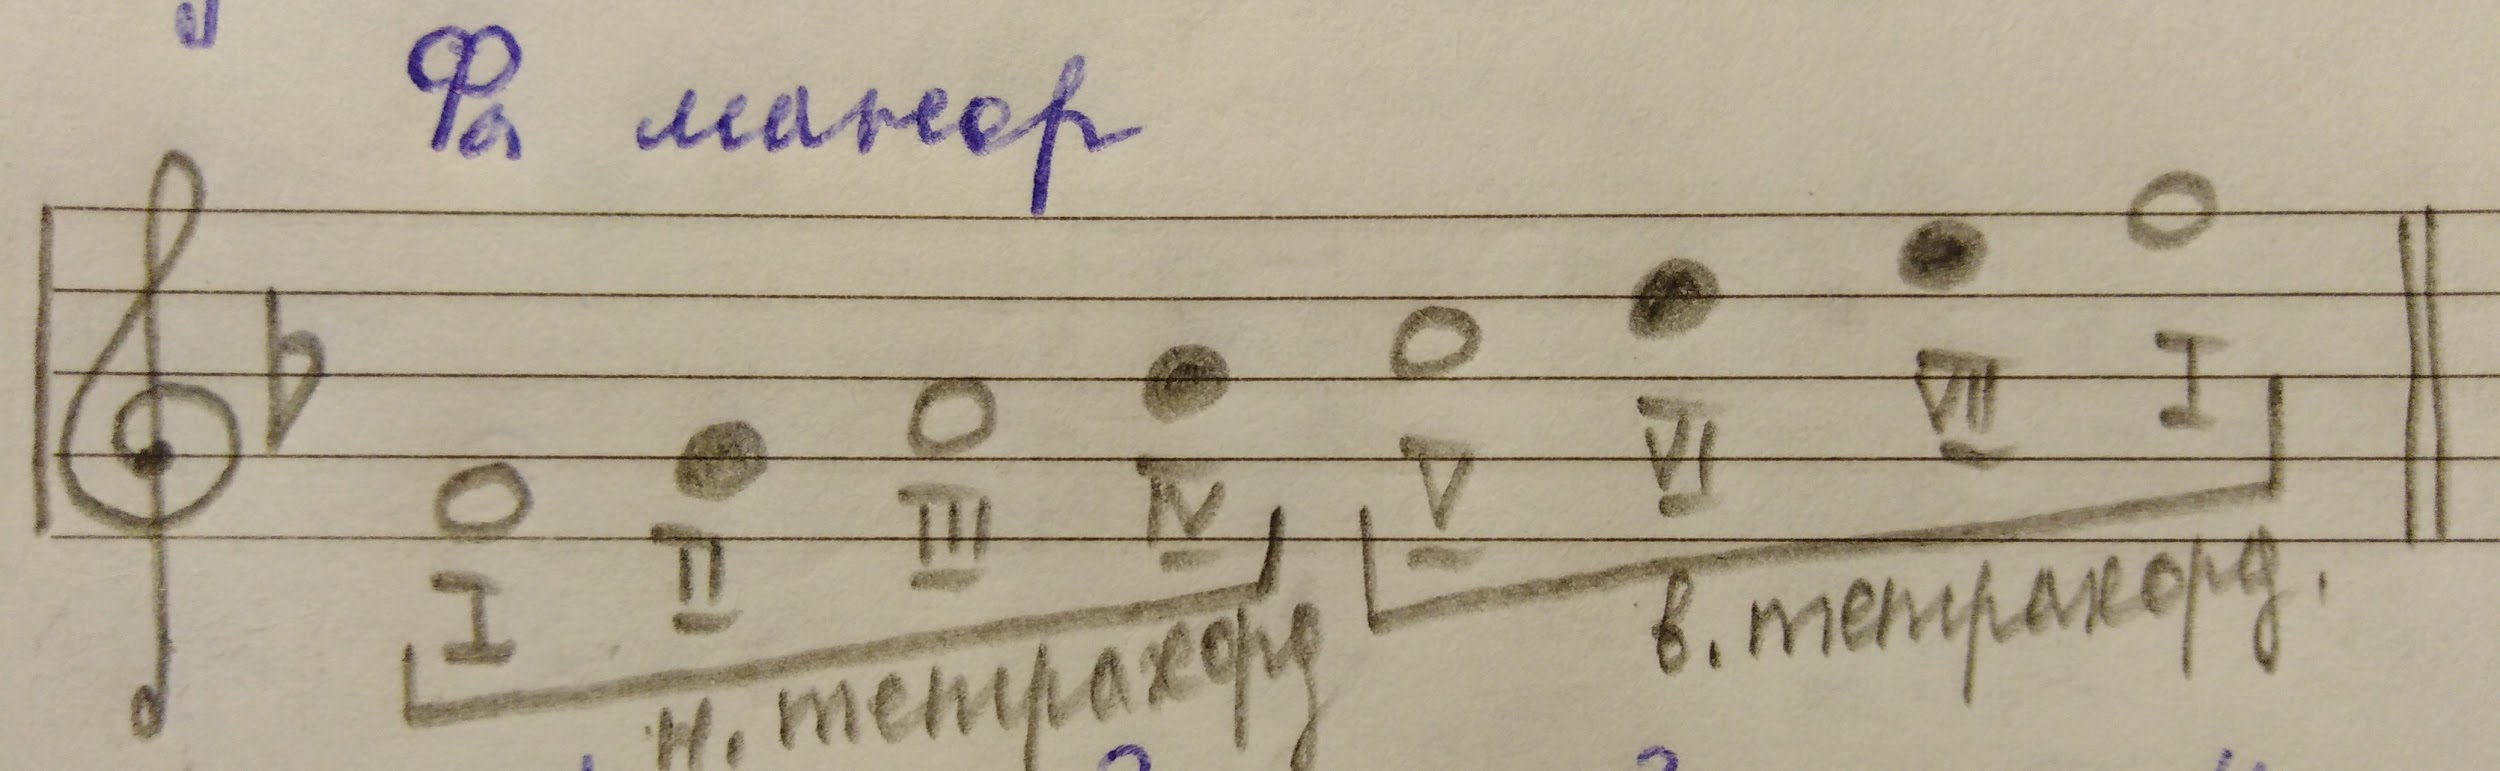 Фа мажор
I II III IV V VI VII I
н. тетрахорд
в. тетрахорд.